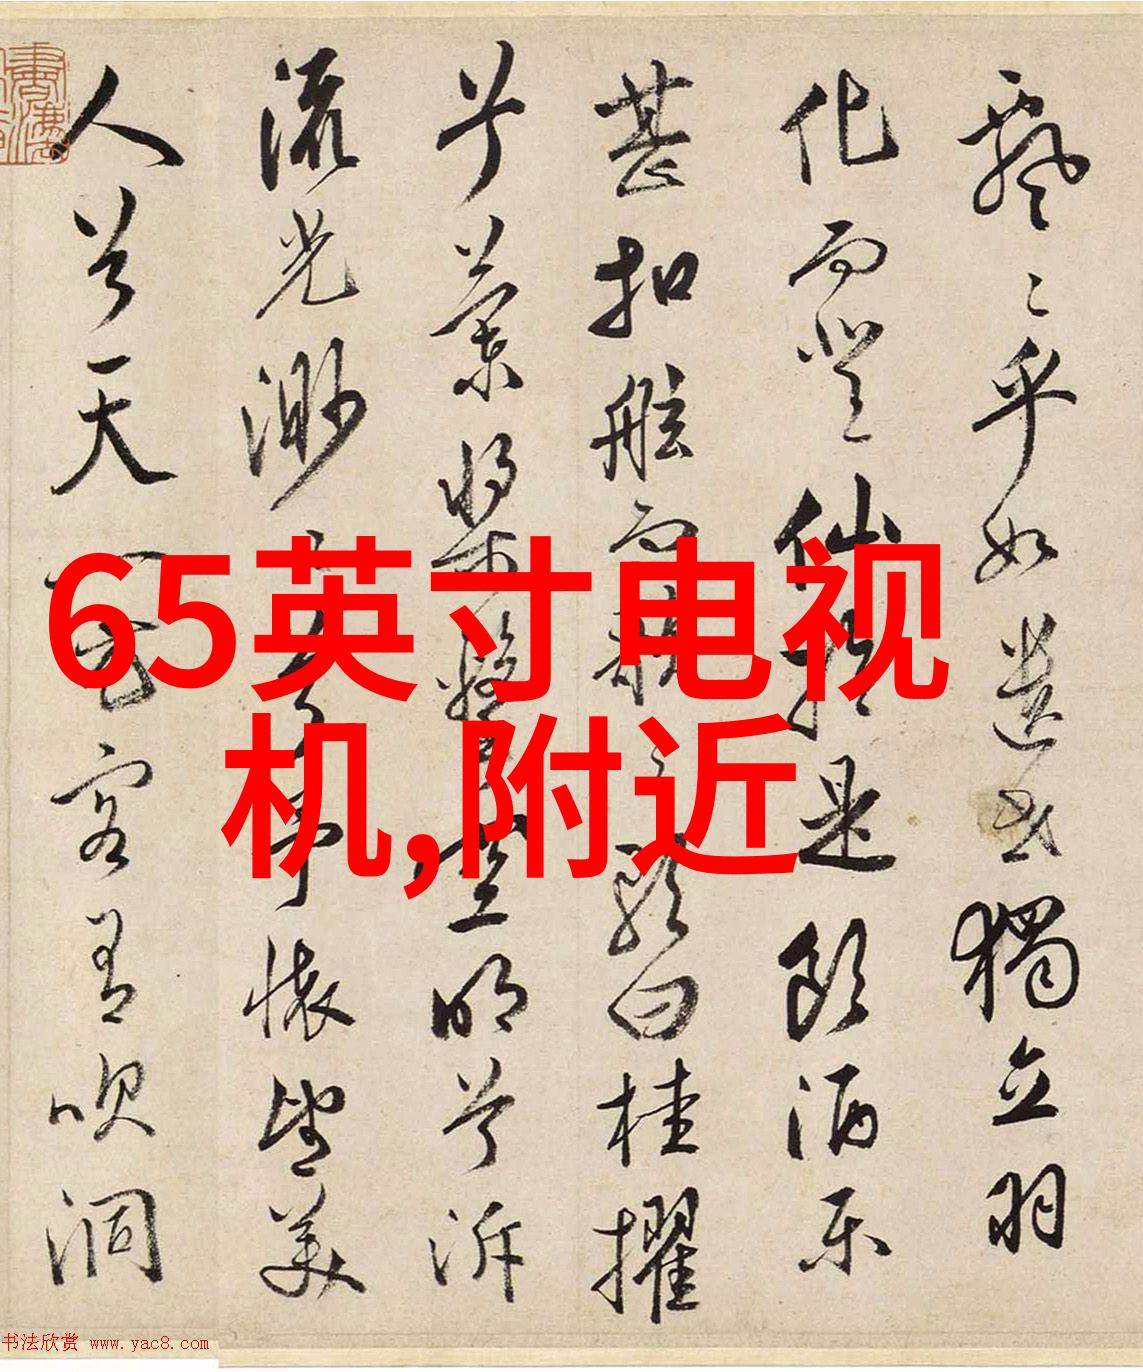 飄〻乎如遺世獨立羽
化而登仙於是飲酒樂
甚扣舷而歌之歌曰桂擢
兮蘭槳擊空明兮泝
流光渺〻兮予懷望美
人兮天一方客有吹洞
65英寸电视
机,附近
书法欣赏 www.yac8.com